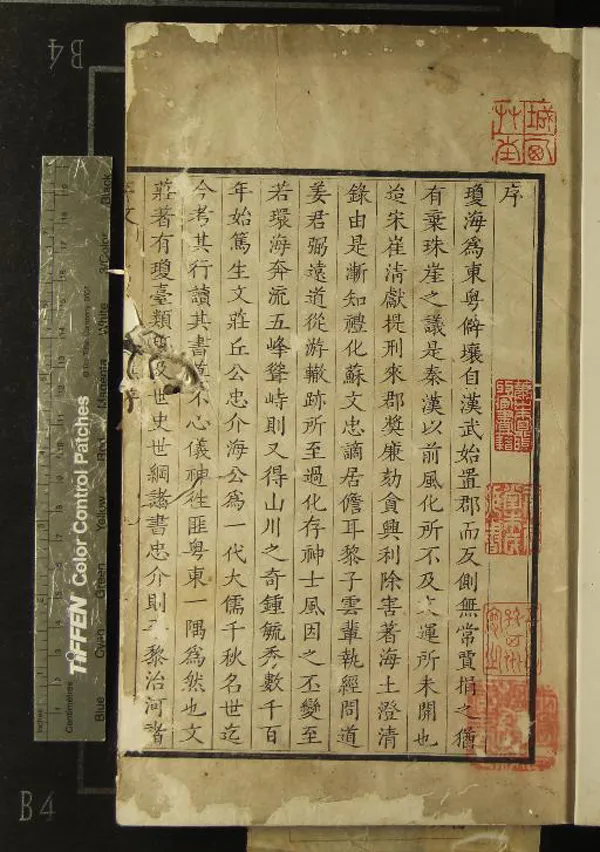 序
瓊海為東粵僻壤自漢武始置郡而反側無常賈捐之猶
有棄珠崖之議是秦漢以前風化所不及文運所未開也
迨宋崔清獻提刑來郡獎廉劾貪興利除害著海上澄清
錄由是漸知禮化蘇文忠謫居儋耳黎子雲輩執經問道
姜君弼遠道從游轍跡所至過化存神士風因之丕變至
若環海奔流五峰聳峙則又得山川之奇鍾毓秀數千百
年始篤生文莊丘公忠介海公為一代大儒千秋名世迄
今考其行讀其書莫不心儀神往匪粵東一隅為然也文
莊著有瓊臺類 及世史世綱諸書忠介則 黎治河諸
B4
B4
TIFFEN Color Control Patches
© The Tiffen Company, 2007
Inches
Centimetres
Blue
Cyan
Green
Yellow
Red
Magenta
White
3/Color
Black